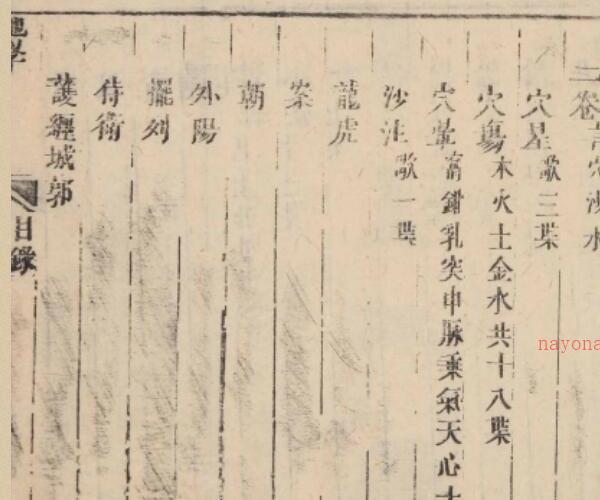 卷言穴沙水
穴星 歌三葉
穴塲 木火土金水共十八葉
穴暈 窩鉗乳突申脉乘氣天心十
沙注 歌一葉
龍虎
案
朝
外陽
擺列
侍衛
護纏城郭
地學 目錄
nayona